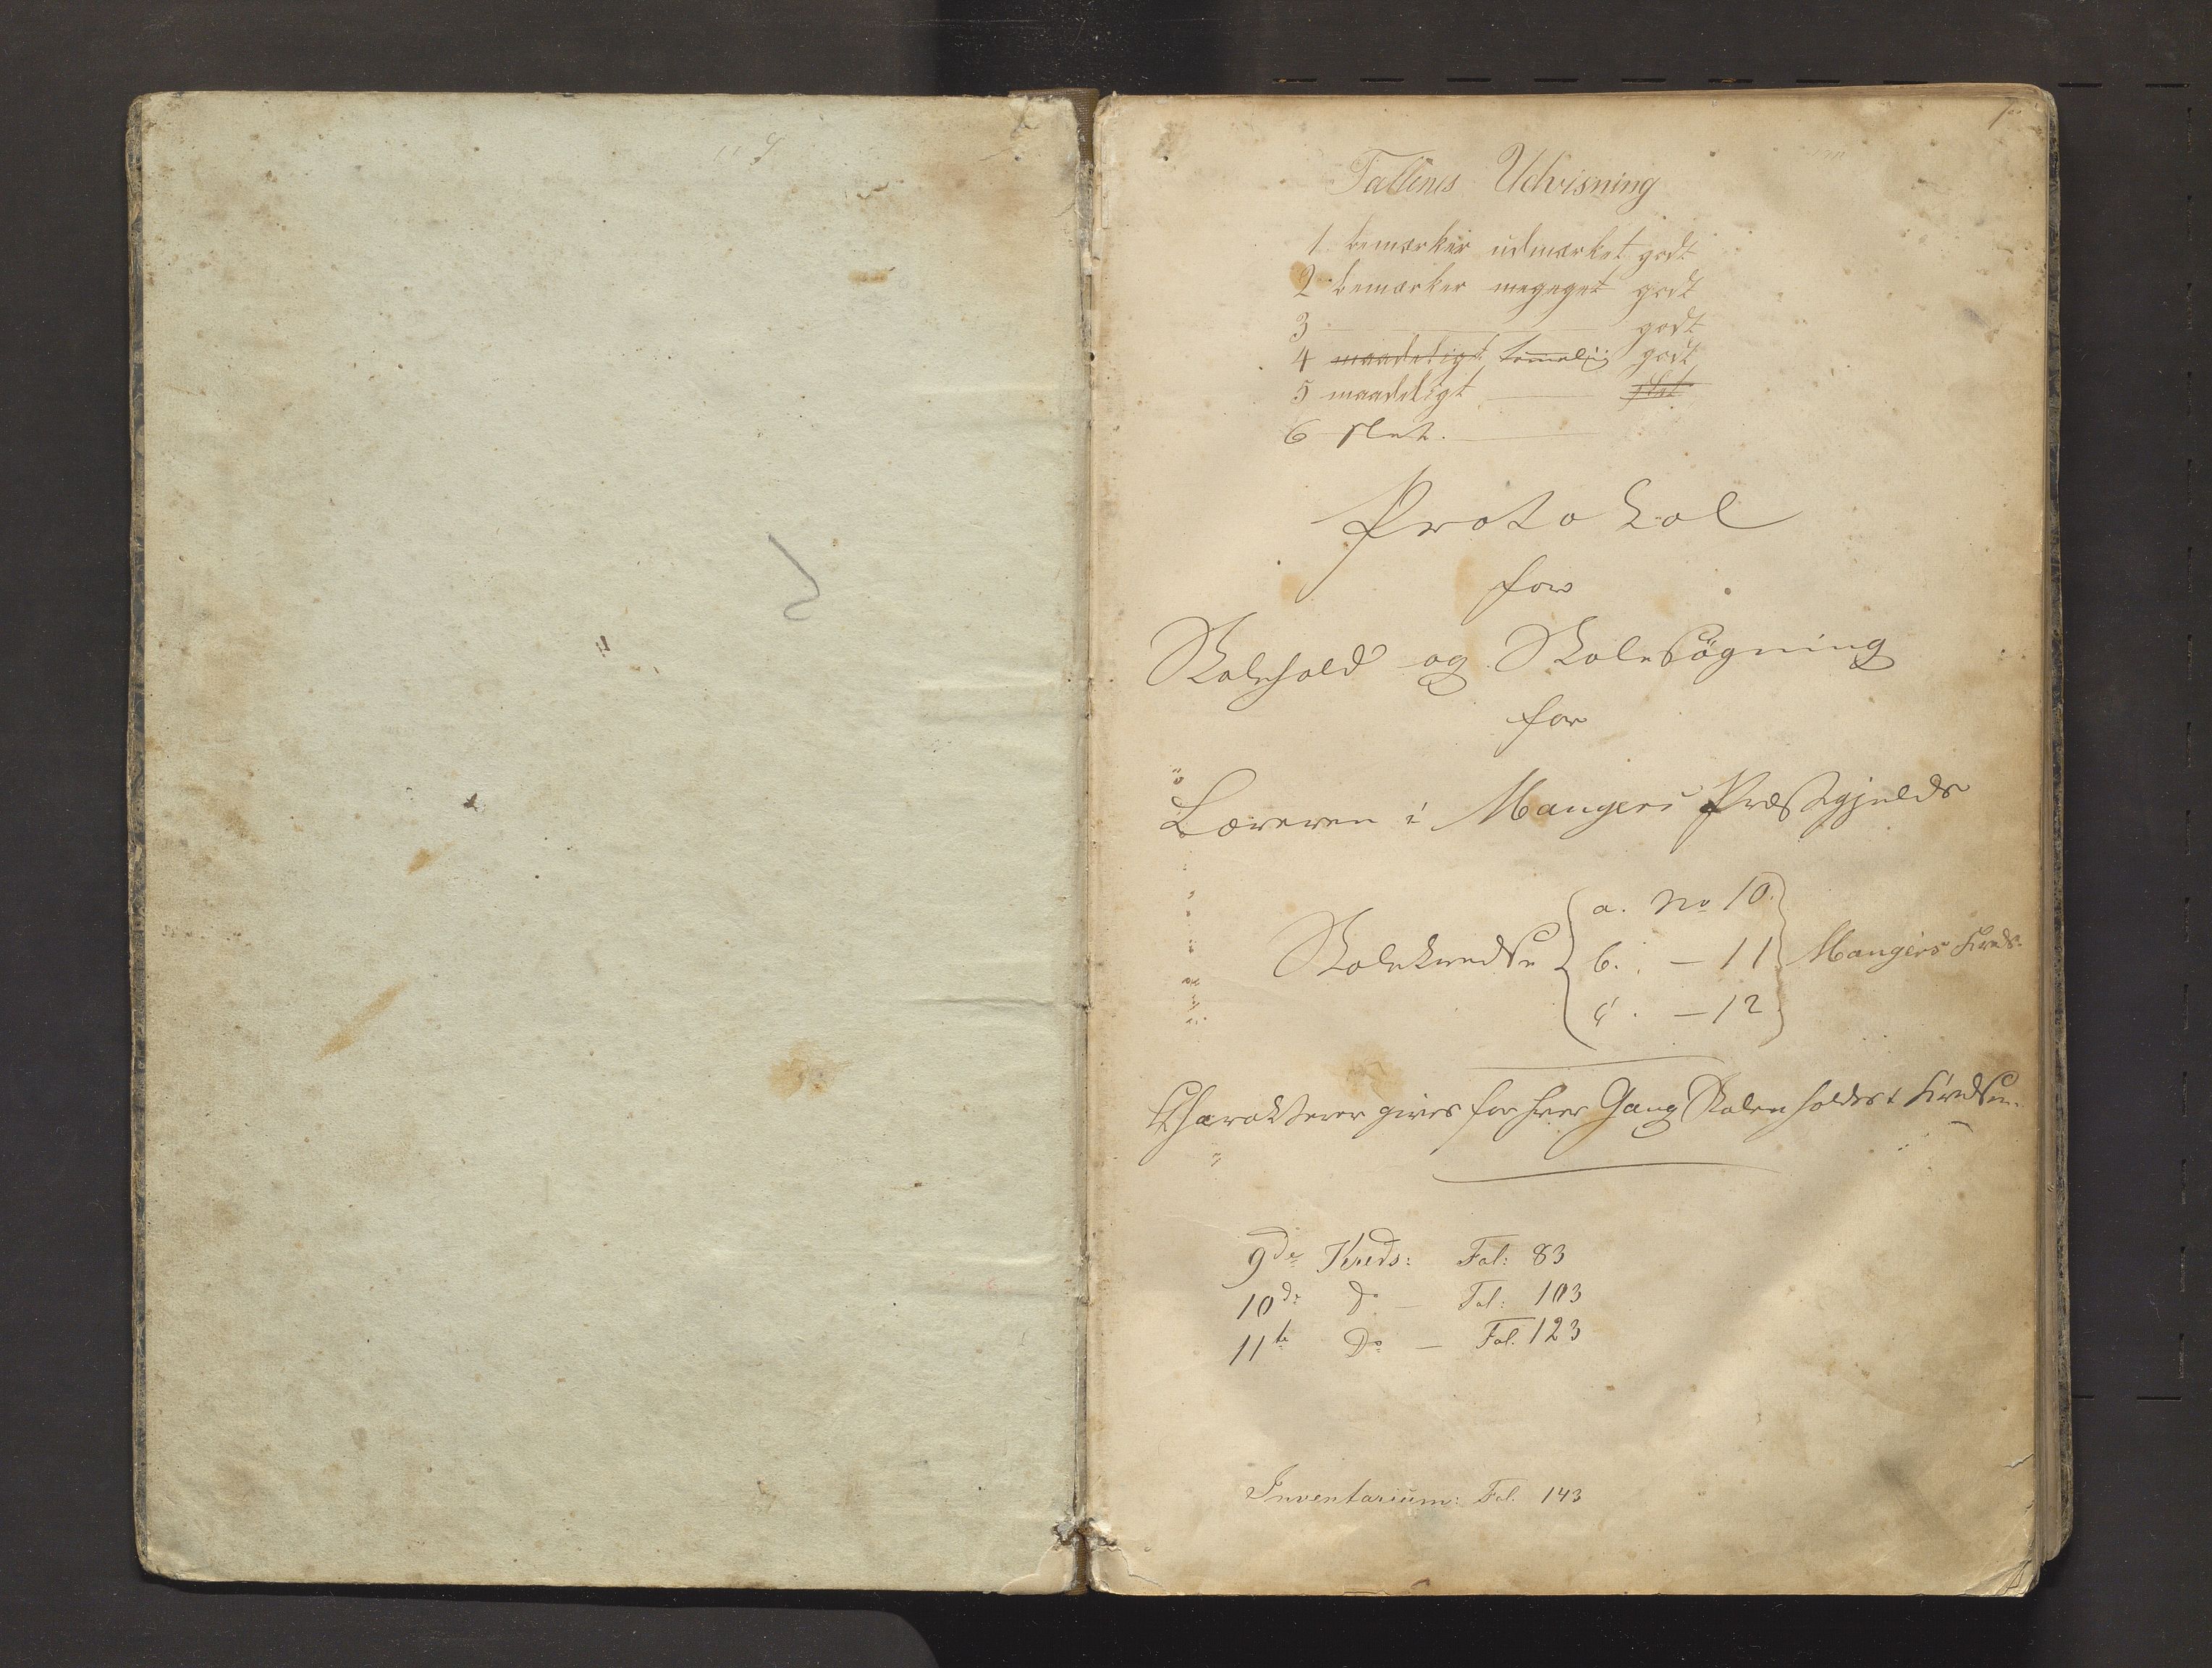 Tallenes Udvisning
1 bemærker udmærket godt
2 bemærker megeget godt
3 — godt
4 maadeligt temmelig godt
5 maadeligt — slet
6 slet. —
Protokol
for
Skolehold og Skolesøgning
for
Læreren i Mangers Præstegjelds
a. No 10.
Skolekredse b. — 11 Mangers Kreds.
c. — 12
Charakterer gives for hver Gang Skolen holdes i Kredsen.
9de Kreds: Fol: 83
10de Do — Fol: 103
11te Do — Fol. 123
Inventarium: Fol. 143